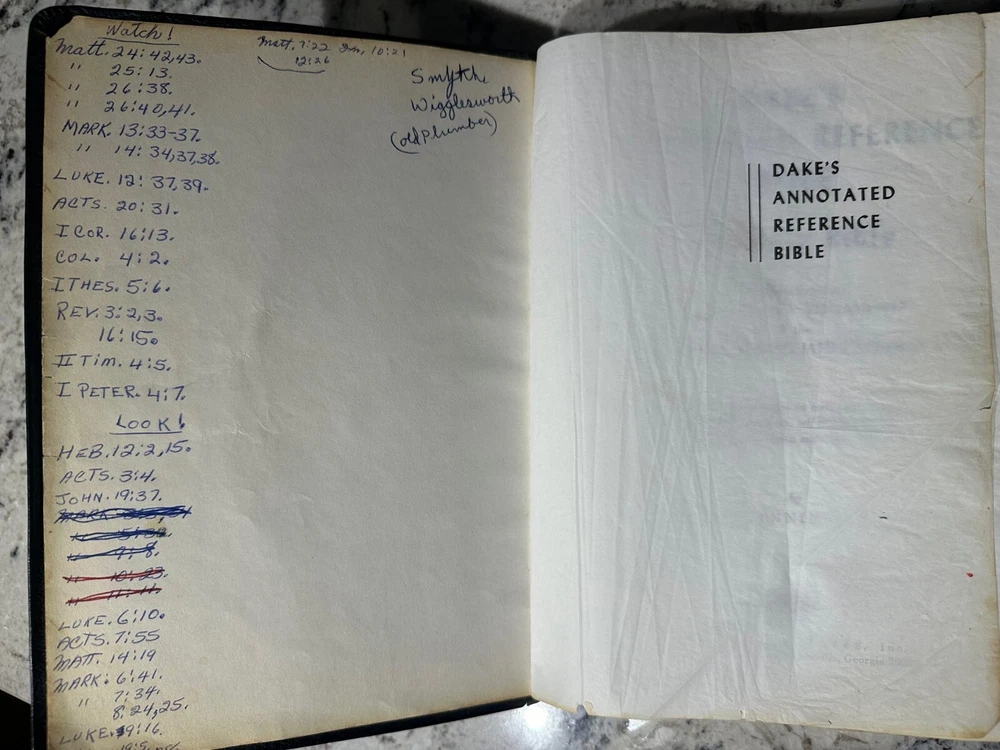 Watch!
Matt. 24:42,43.
" 25:13.
" 26:38.
" 26:40,41.
MARK. 13:33-37.
" 14:34,37,38.
LUKE. 12:37,39.
ACTS. 20:31.
I COR. 16:13.
COL. 4:2.
I THES. 5:6.
REV. 3:2,3.
16:15.
II Tim. 4:5.
I PETER. 4:7.
LOOK!
HEB. 12:2,15.
ACTS. 3:4.
JOHN. 19:37.
LUKE. 6:10.
ACTS. 7:55
MATT. 14:19
MARK: 6:41.
" 7:34.
8:24,25.
LUKE. 9:16.
Matt. 7:22 Jn. 10:21
12:26
Smythe
Wigglesworth
(old Plumber)
DAKE'S
ANNOTATED
REFERENCE
BIBLE